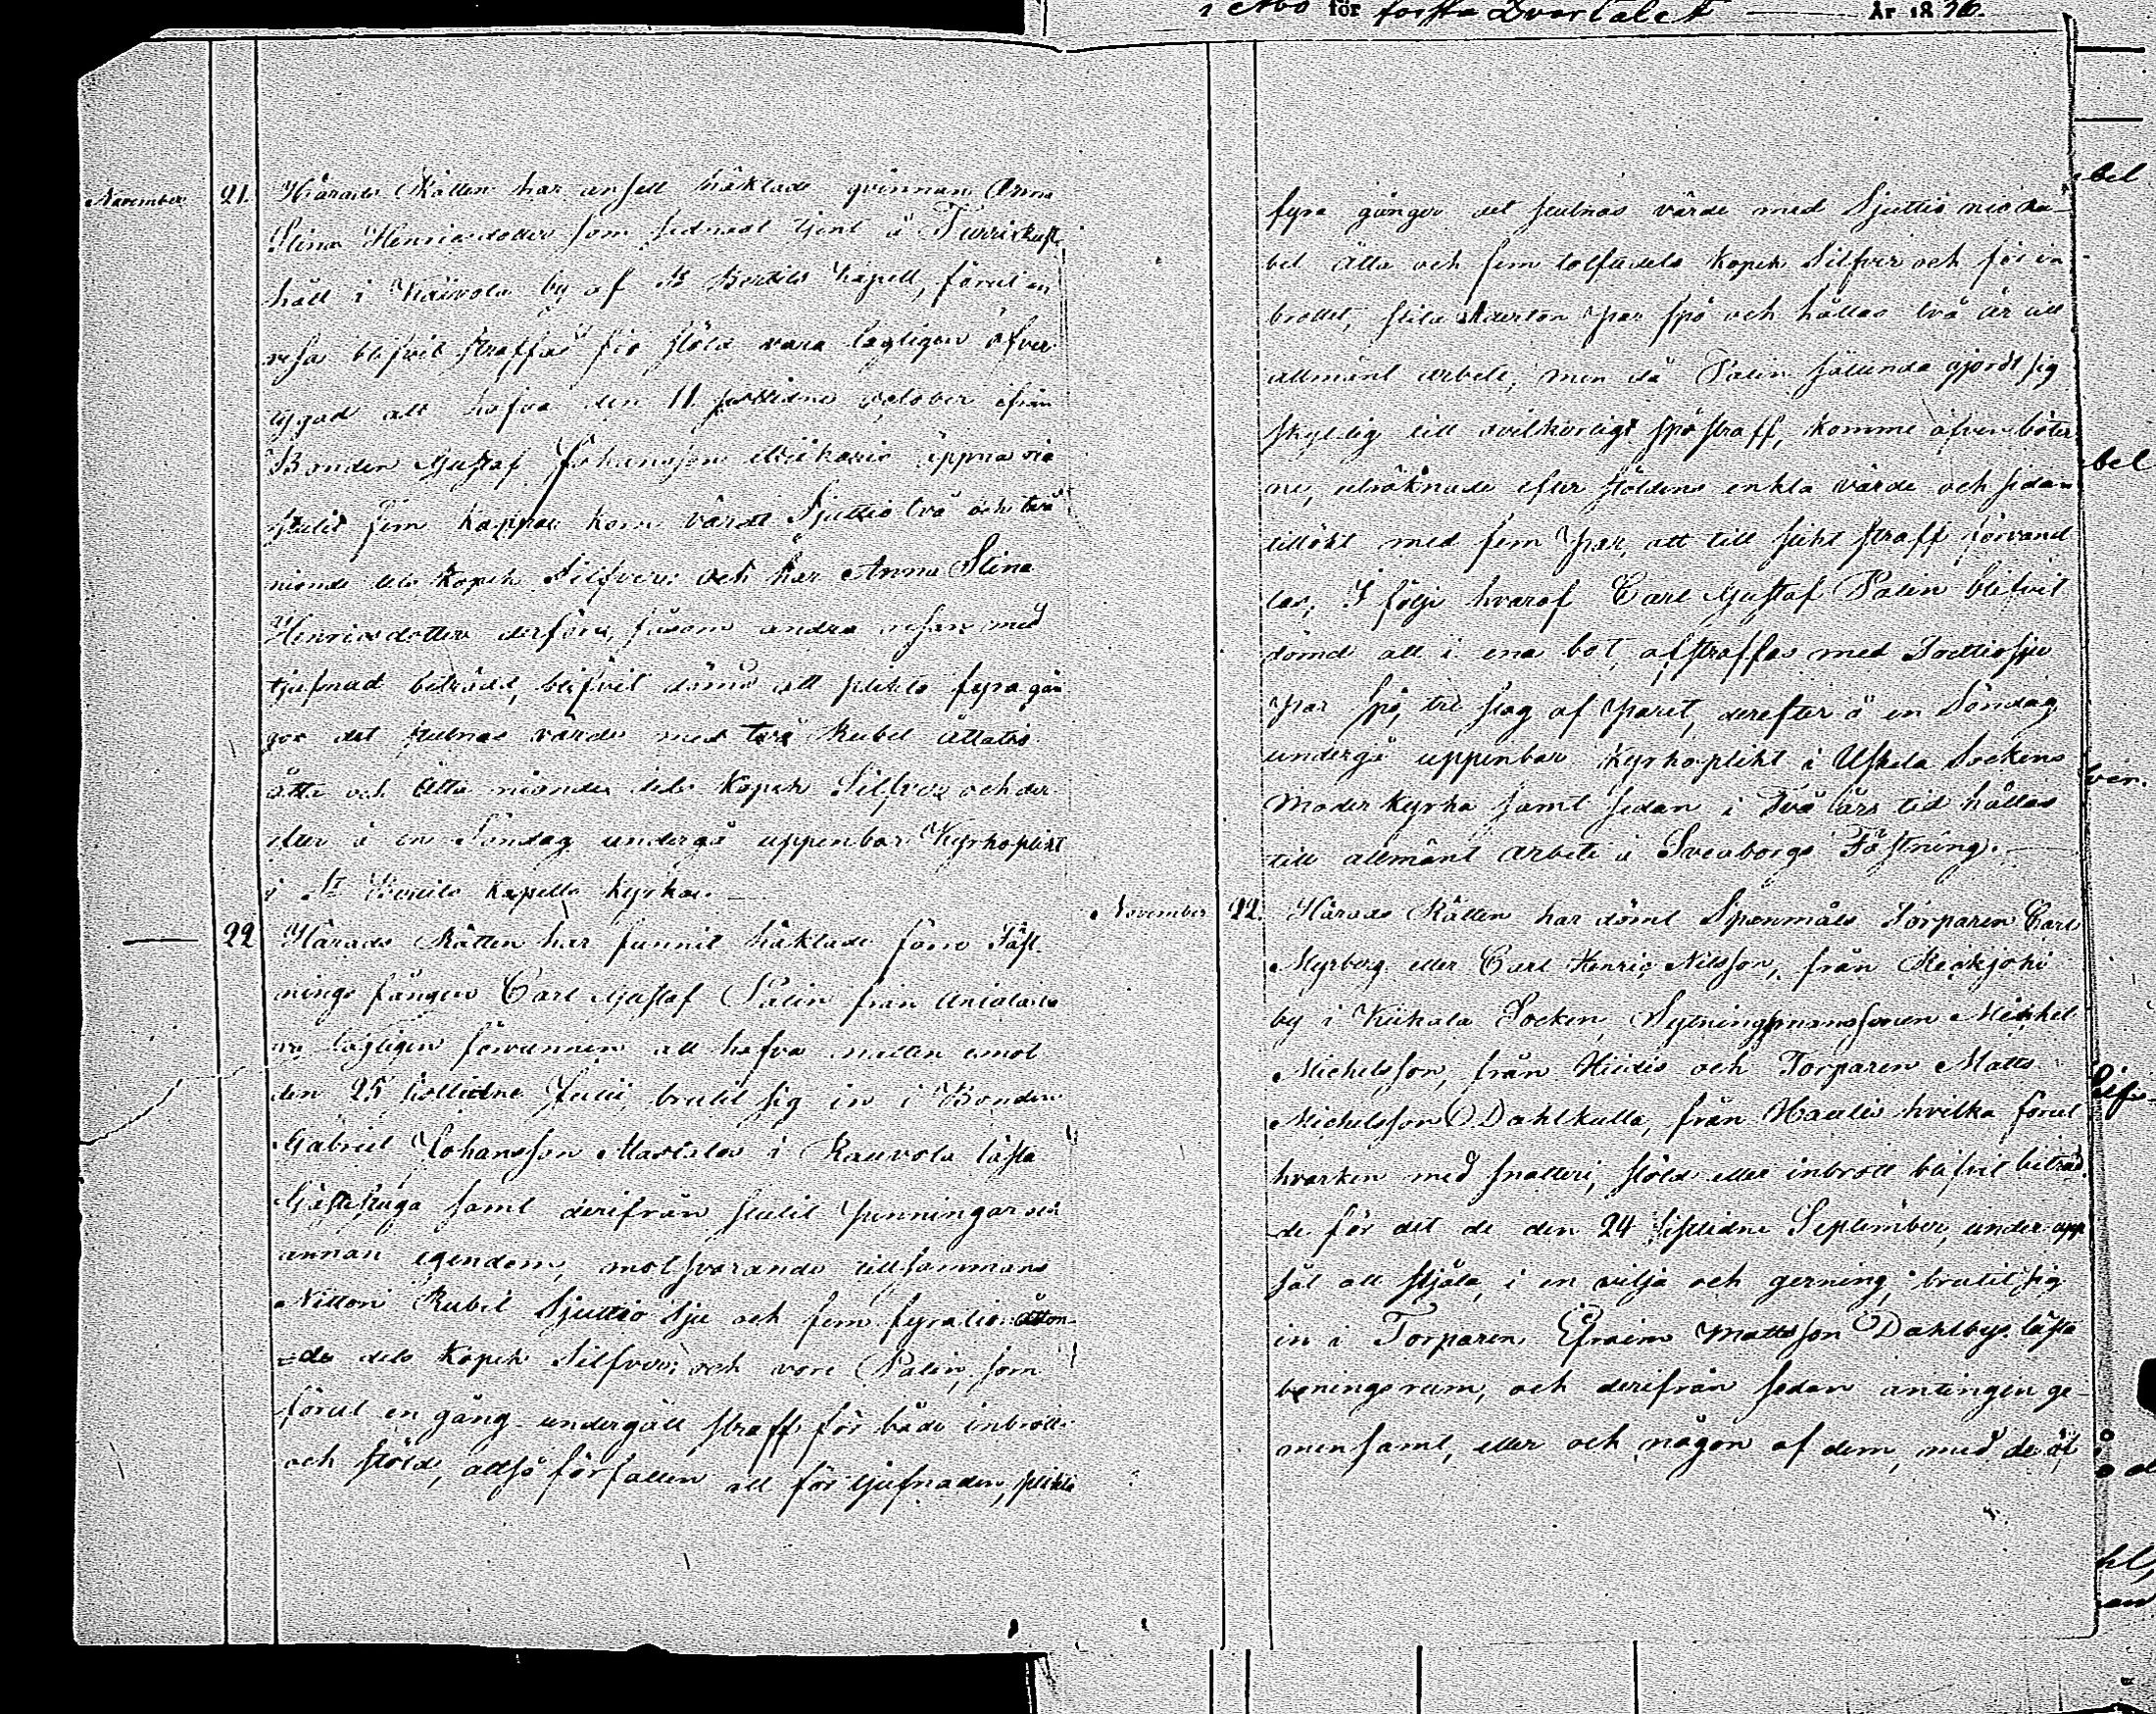 i Åbo för första Qvartalet År 1876.
November 21. Härads Rätten har ansett häktade qvinnan Anna
Stina Henricsdotter som sednast tjent å
håll i by af St Bertils Kapell, förut en
resa blifvit straffad för stöld vara lagligen öfver
tygad att hafva den 11 sistlidne October ifrån
Bonden Gustaf Johansson öppna
stulit fem kappar korn värdt Sjuttio två och två
nionde dels kopek Silfver och har Anna Stina
Henricsdotter derföre, såsom andra resan med
tjufnad beträdd, blifvit dömd att plikta fyra gån
gor det stulnas värde med två Rubel åttatio
åtta och åtta nionde dels Kopek Silfver och der
efter å en Söndag undergå uppenbar Kyrkoplikt
i St Bertils Kapells kyrka.
22 Härads Rätten har funnit häktade förre Fäst
nings fången Carl Gustaf Palin från
lagligen förvunnen att hafva natten emot
den 25 sistlidne Julii brutit sig in i Bonden
Gabriel Johansson i Rauvola låsta
Gäststuga samt derifrån stulit penningar och
annan egendom, motsvarande tillsammans
Nitton Rubel Sjuttio sju och fem fyratio åtton
=de dels Kopek Silfver; och vore Palin, som
förut en gång undergått straff för både inbrott
och stöld, alltså förfallen att för tjufnaden, plikta
fyra gånger det stulnas värde med Sjuttio nio Ru-
bel Åtta och fem tolftedels Kopek Silfver och för in
brottet, slita Aderton par spö och hållas två år till
allmänt arbete; men då Palin sålunda gjordt sig
skyldig till ovilkorligt spöstraff, komme äfven böter
ne, uträknade efter stöldens enkla värde och sedan
tillökt med fem par, att till slikt straff förvand
las; I följe hvaraf Carl Gustaf Palin blifvit
dömd att i ena bot afstraffas med Trettiosju
par spö, tre slag af paret, derefter å en Söndag
undergå uppenbar Kyrkoplikt i Uskela Sockens
Moder kyrka samt sedan i Två års tid hållas
till allmänt arbete å Sveaborgs Fästning.
November 22. Härads Rätten har dömt Spanmåls Torparen Carl
Myrberg eller Carl Henric Nilsson, från
by i Kiikala Socken, Sytningsmanssonen Michel
Michelsson, från Hiidis och Torparen Matts
Michelsson Dahlkulla, från Haulis hvilka förut
hvarken med snatteri, stöld eller inbrott blifvit beträd
de för det de den 24 sistlidne September, under upp
såt att stjäla, i en vilja och gerning, brutit sig
in i Torparen Efraim Mattsson Dahlbys låsta
boningsrum, och derifrån sedan antingen ge-
mensamt, eller och någon af dem, med de öf